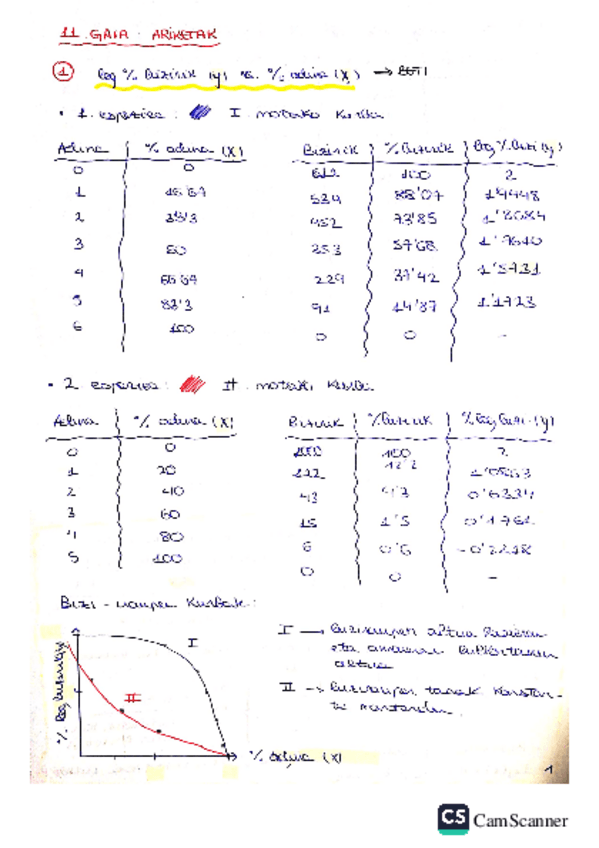 11. GAIA: ARIKETAK
1 log % Bizirik (y) vs. % adina (X) → BETI
• 1. espeziea: I. motako kurba
Adina | % adina (X)
0 | 0
1 | 16'67
2 | 33'3
3 | 50
4 | 66'67
5 | 83'3
6 | 100
Bizirik | % Bizirik | log % Bizi (y)
612 | 100 | 2
539 | 88'07 | 1'9448
452 | 73'85 | 1'8684
353 | 57'68 | 1'7610
229 | 37'42 | 1'5731
91 | 14'87 | 1'1723
0 | 0 | -
• 2 espeziea: II. motako kurba
Adina | % adina (X)
0 | 0
1 | 20
2 | 40
3 | 60
4 | 80
5 | 100
Bizirik | % Bizirik | % log bizi. (y)
1000 | 100 | 2
122 | 12'2 | 1'0863
43 | 4'3 | 0'6334
15 | 1'5 | 0'1761
6 | 0'6 | -0'2218
0 | 0 | -
BIZI-iraupen kurbak:
I
II
% log bizirik (y)
% adina (X)
I → biziraupen altua hasieran
eta amaieran
altua
II → biziraupen tasak konstan-
te mantendu.
1
CS CamScanner